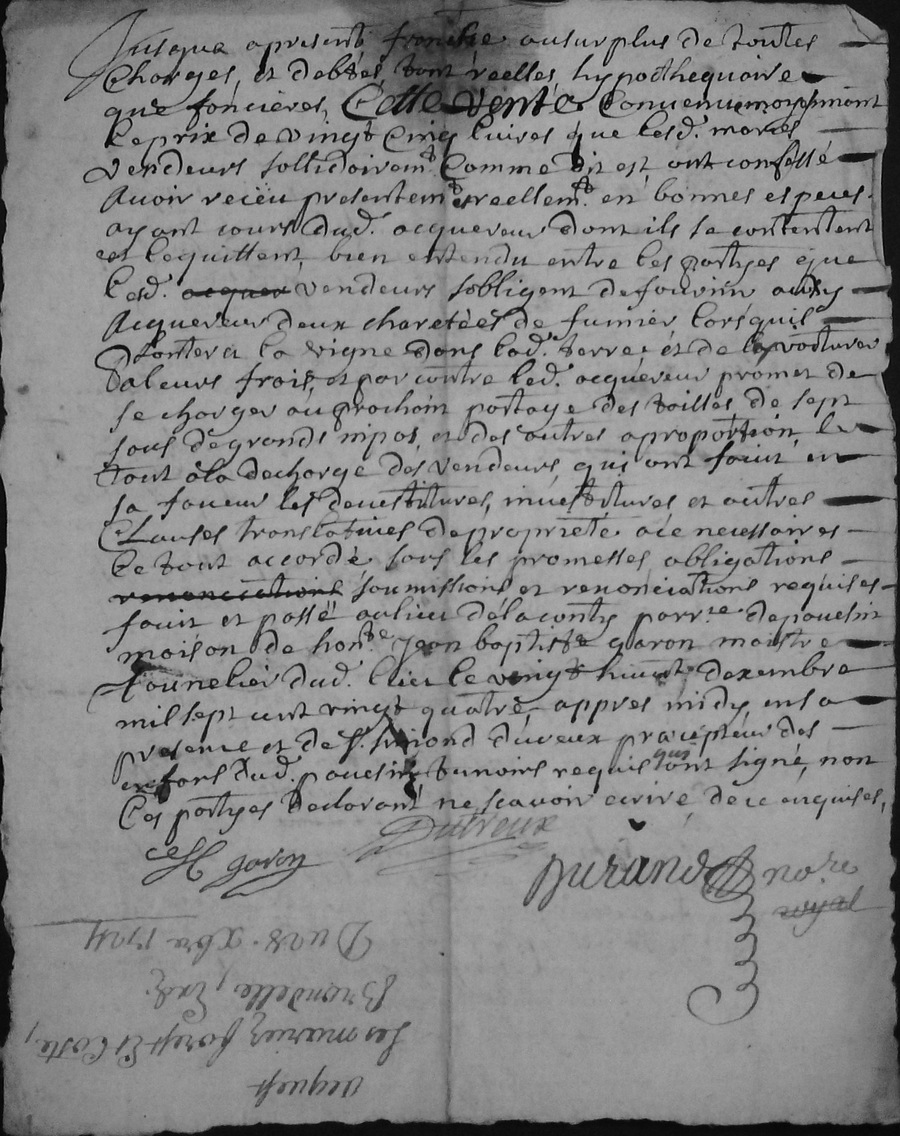 Jusqua apresent franche ausurplus de toutes
Charges, et debtes, tant reelles, hypothequaire
que foncières, Cette vente Convenue moyenant
le prix de vingt Cinq livres que lesd. mariés
vendeurs sollidairemt Comme dit est ont confessé
Avoir receu presentemt et reellemt en bonnes especes
ayant cours dud. acquereur dont ils se contentent
et lequittent, bien entendu entre les partyes que
lesd. acquer vendeurs sobligent de fournir audy
Acquereur deux charetées de fumier, lorsquil
plantera la vigne dans lad. terre, et de la voiturer
a leurs frais, et par contre led. acquereur promet de
se charger au prochain partage des tailles, de sept
sous de grands inpos, et des autres a proportion, le
tout a la decharge des vendeurs, qui ont faict en
sa faveur les devestitures, investitures et autres
Clauses translatives de proprieté a ce necessaires
le tout accordé sous les promesses, obligations
renonciations soumissions et renonciations requises
faict et passé au lieu de la conty parr.se de pouesin
maison de hon.e Jean baptiste garon maistre
tounelier dud. lieu le vingt huict dexembre
mil sept cent vingt quatre, appres midy, en sa
presence et de Sr. simond duveux præcepteur des
enfans dud. pouesin temoins requis qui ont signé, non
les partyes declarant ne scavoir ecrire de ce enquises,
garon Duveux
Durand no.re
royal
acquest
Les mariez forest Et Coste,
Brondelle,
Du 28. xbre 1724